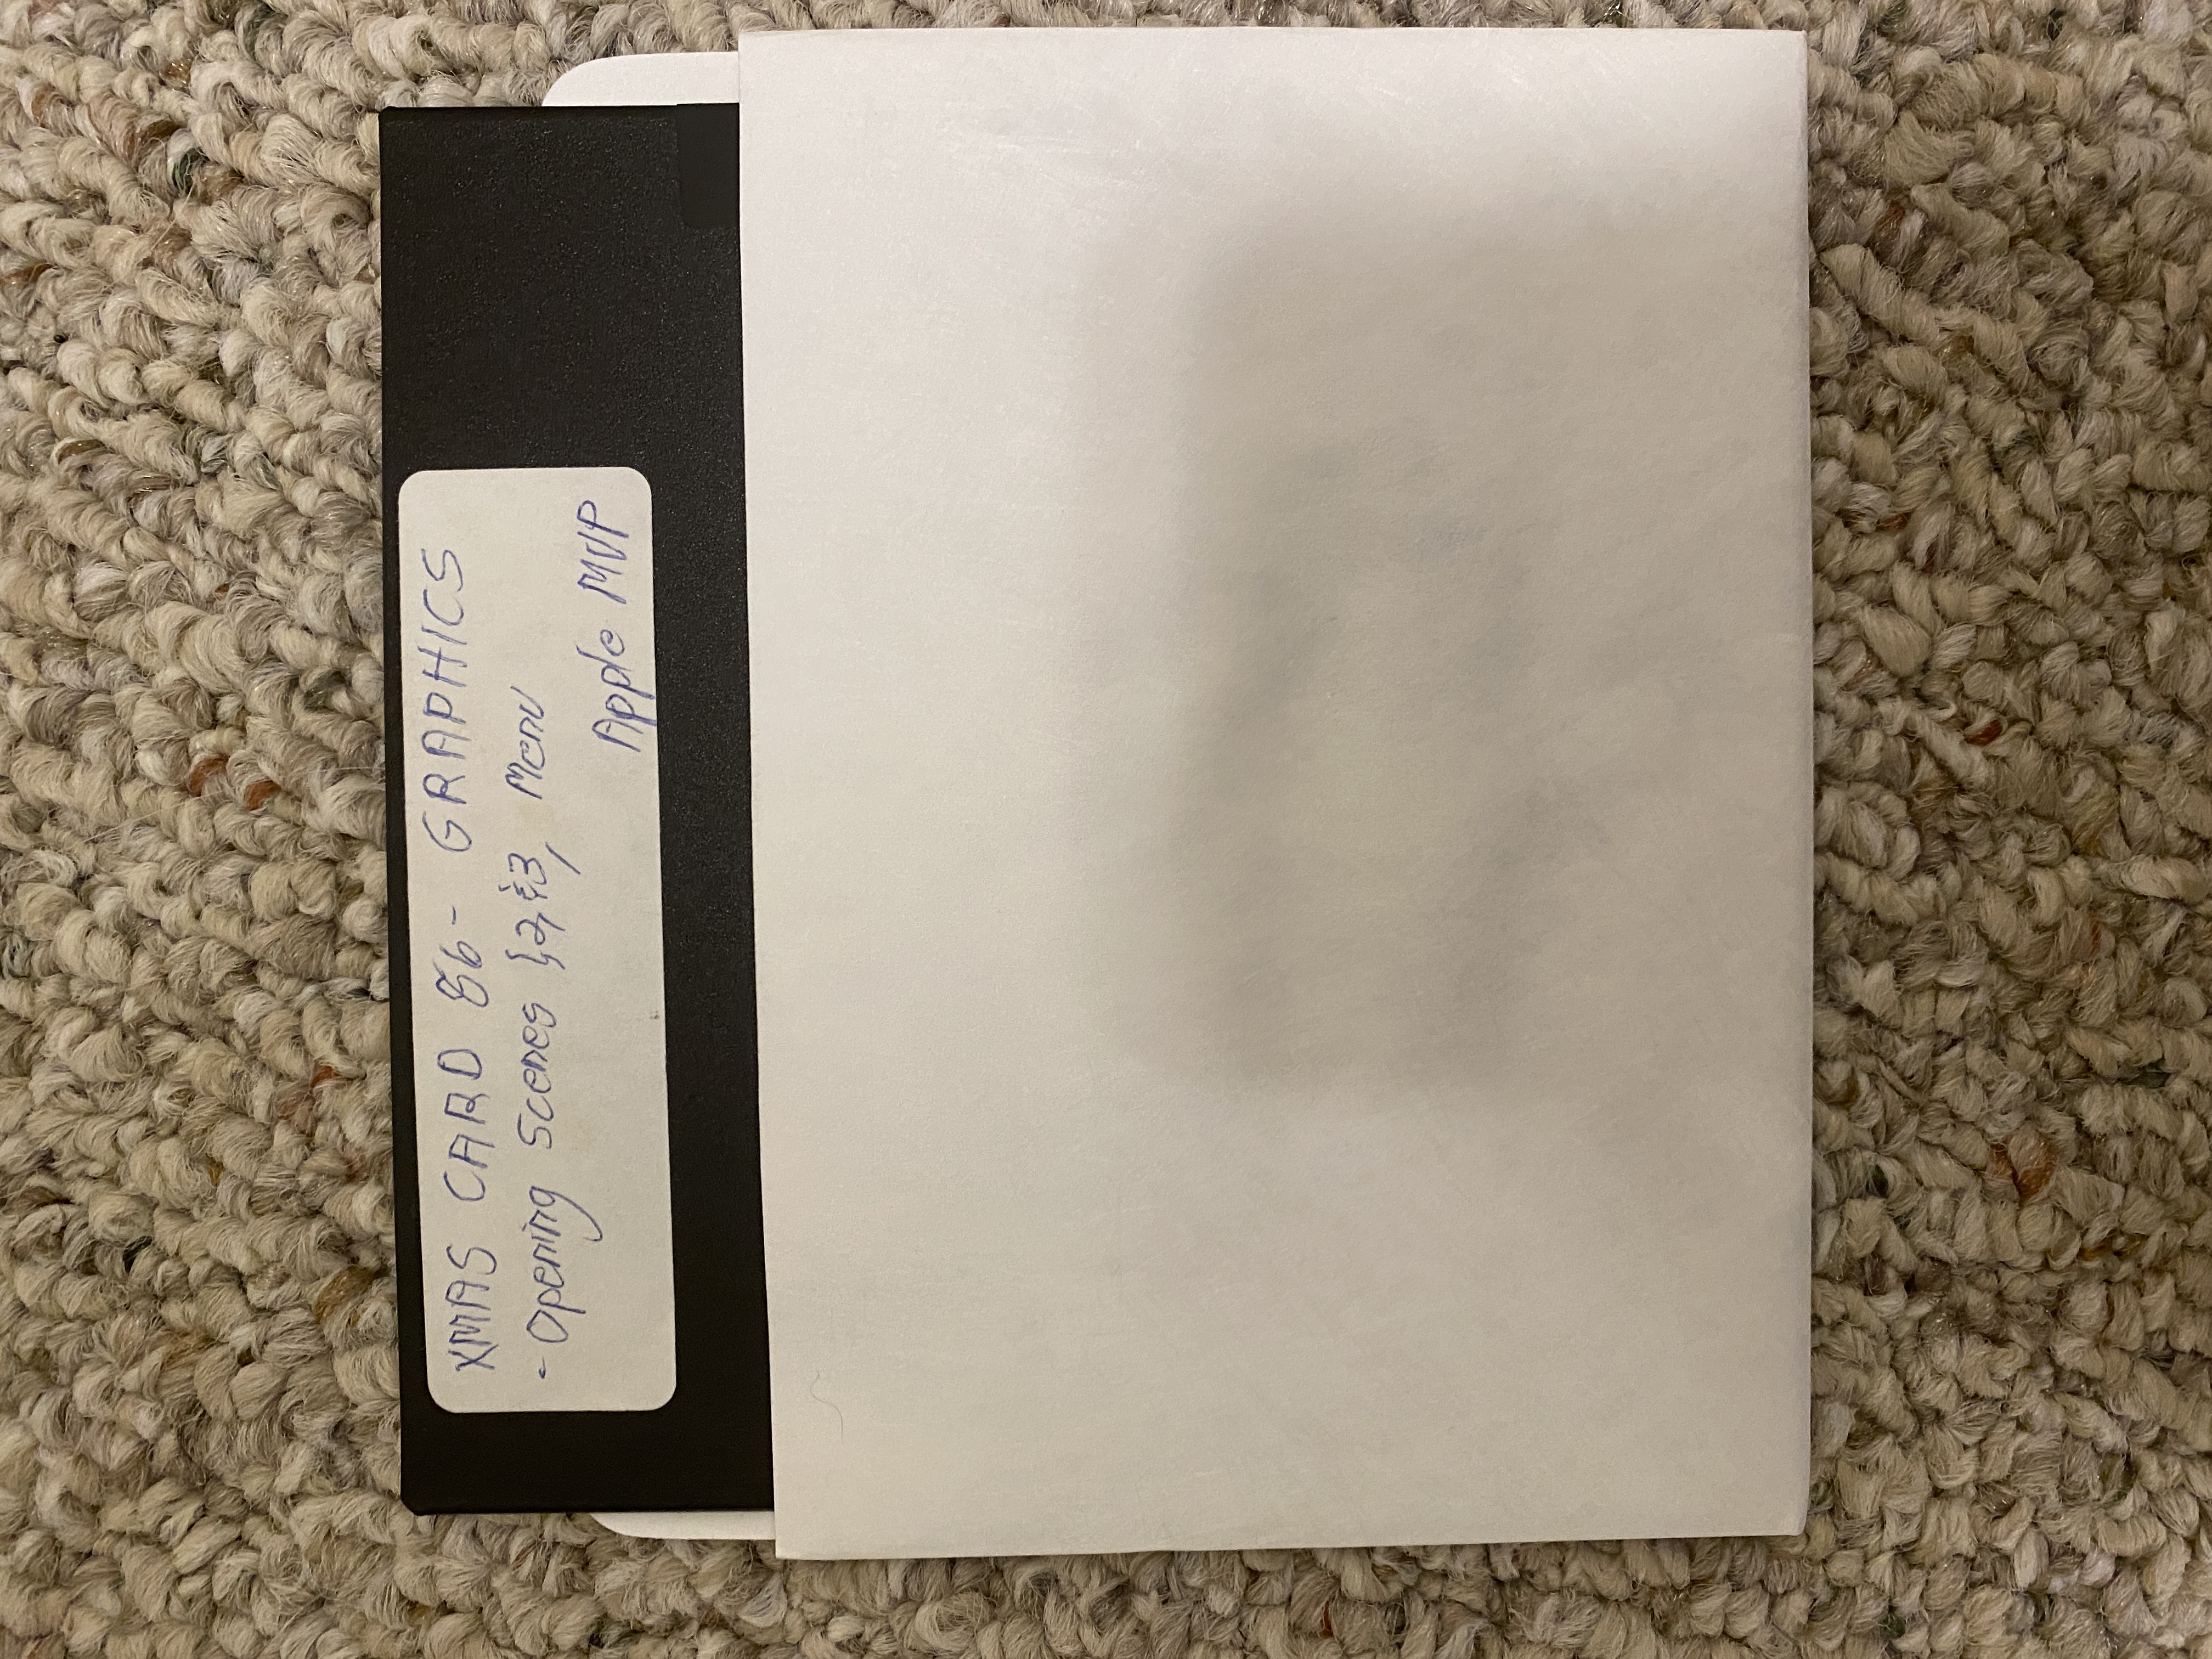 XMAS CARD 86- GRAPHICS
- Opening Scenes 1,2,&3, Menu
Apple MVP